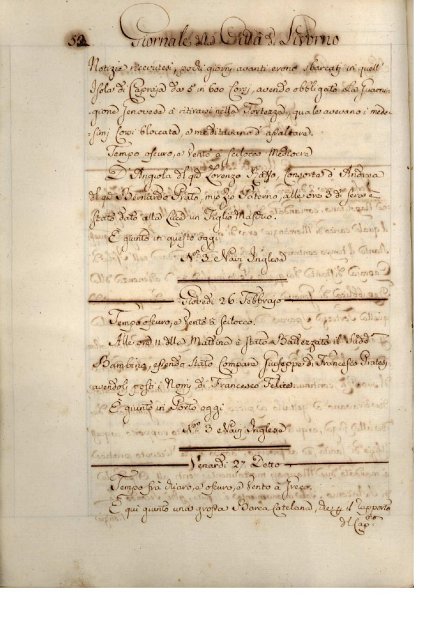 52 Giornale della Città di Livorno
Notizie ricevutesi, pochi giorni avanti erono sbarcati in quell'
Isola di Capraja da 5 in 600 Corsi, avendo obbligato la Guarni
gione Genovese à ritirarsi nella Fortezza, quale avevano i mede
simi Corsi bloccata, e meditavano d'assaltare.
Tempo oscuro, e Vento à Scilocco Mediocre
D. Angiola del qm Lorenzo Consorte d'Andrea
del qm Bernardo Prato, Paterno, alle ore 3 di sera è
stato dato alla Luce un Figlio Mastio.
È giunto in questo oggi
N.º 3 Navi Inglese
Giovedì 26 Febbrajo
Tempo oscuro, e Vento à Scilocco.
Alle ore 11 della Mattina è stato Battezzato il
Bambino, essendo stato Compare Giuseppe di Francesco Pratesi
avendoli posti i Nomi di Francesco Felice
È giunto in Porto oggi
N.º 3 Navi Inglese
Venardì 27 Detto
Tempo frà chiaro, e oscuro, e Vento à Greco.
È qui giunto una grossa Barca Catelana, il rapporto
del Cap.no